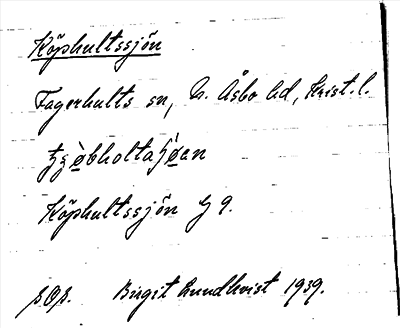 Köphultssjön
Fagerhults sn, N. Åsbo hd, Krist. l.
Köphultssjön G 9.
Birgit Lundkvist 1939.